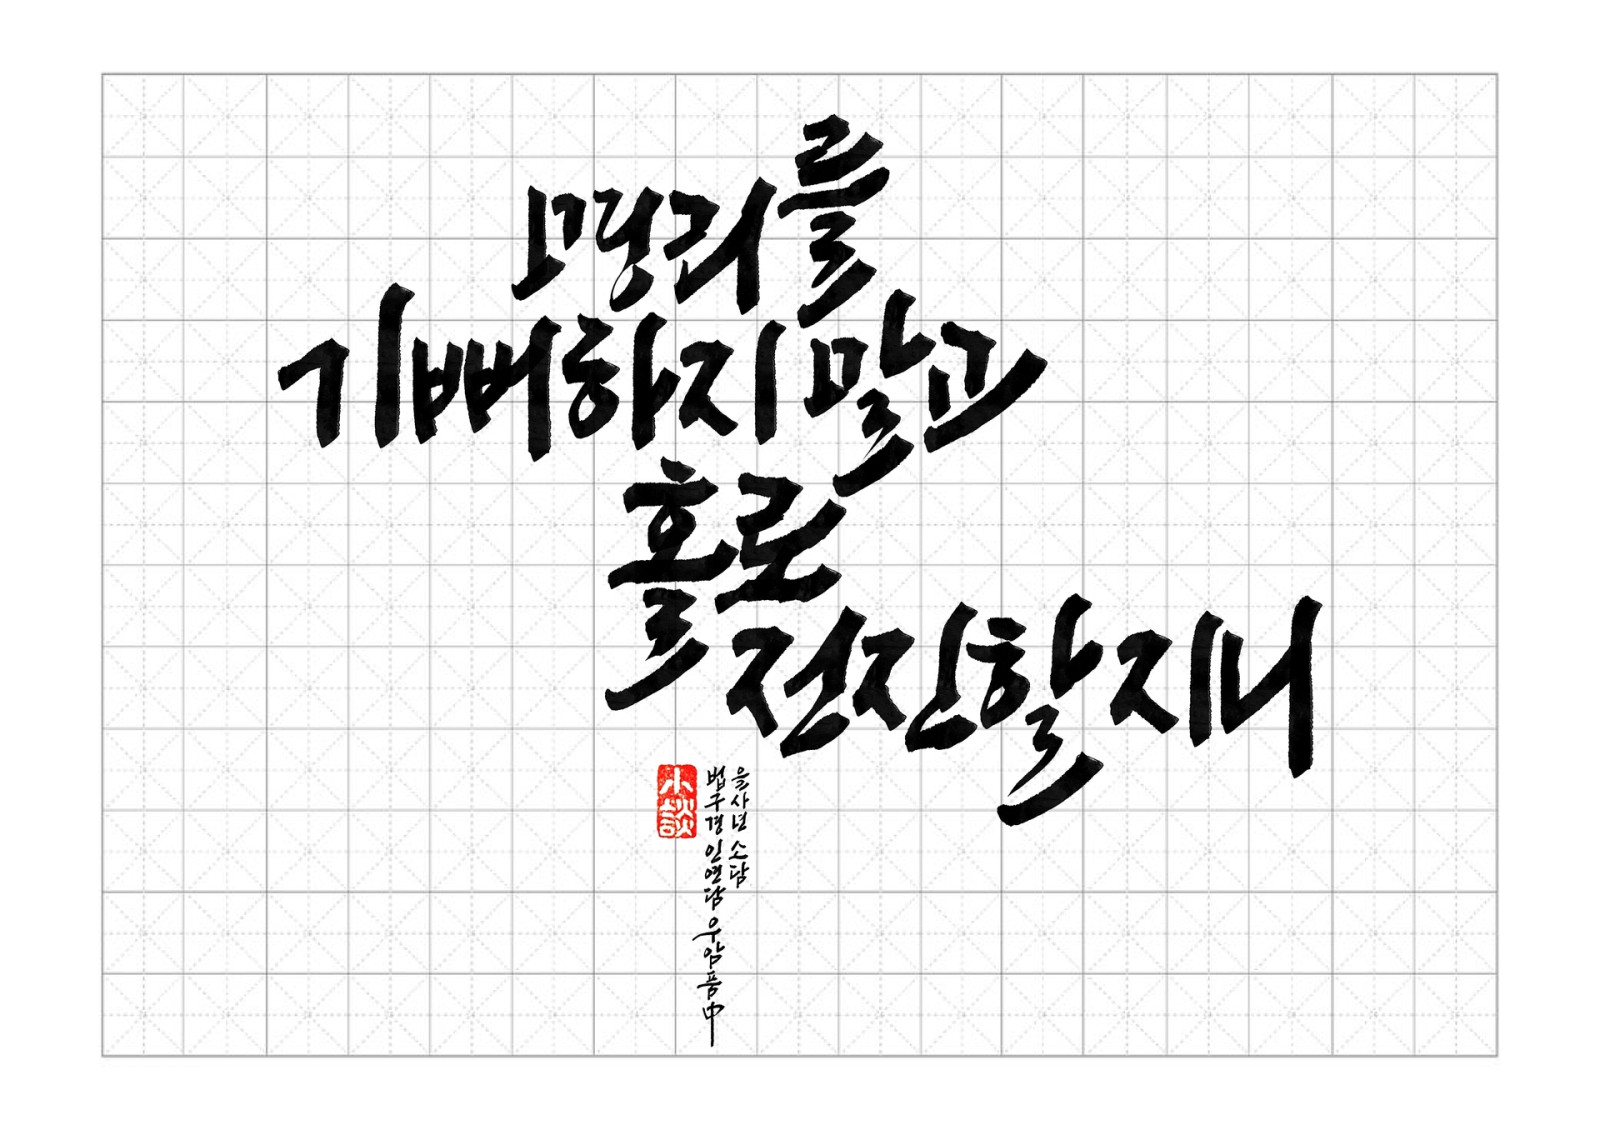 명리를
기뻐하지 말고
홀로
전진할지니
을사년 소담
법구경 인연담 우암품 中
小談